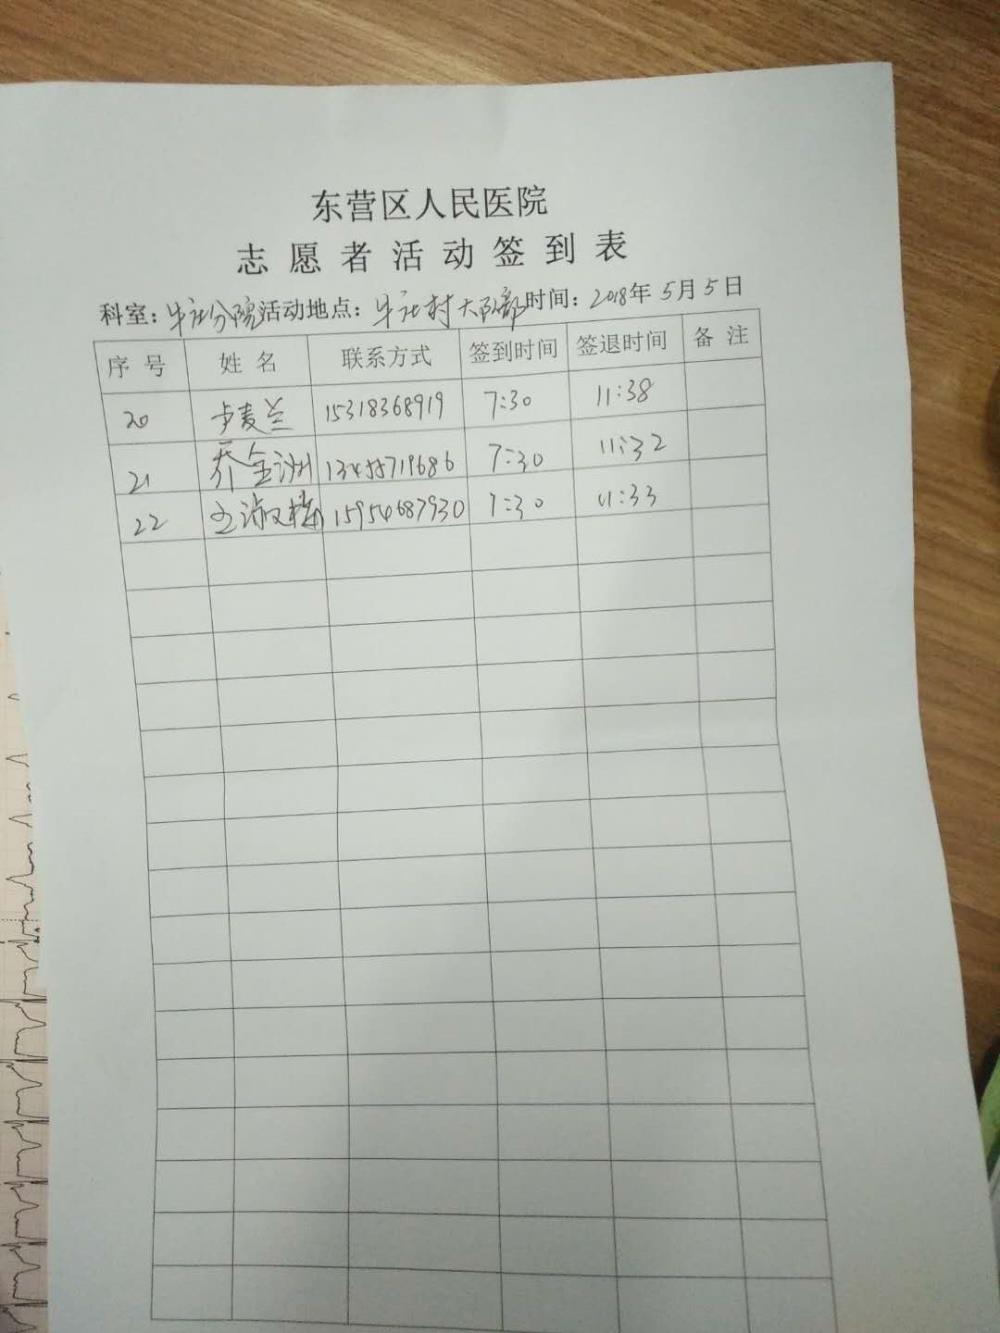 东营区人民医院
志愿者活动签到表
科室：牛庄分院 活动地点：牛庄村大队部 时间：2018年5月5日
序号 姓名 联系方式 签到时间 签退时间 备注
20 卡麦兰 15318368919 7:30 11:38
21 乔金洲 13455719686 7:30 11:32
22 王淑梅 15954687930 7:30 11:33